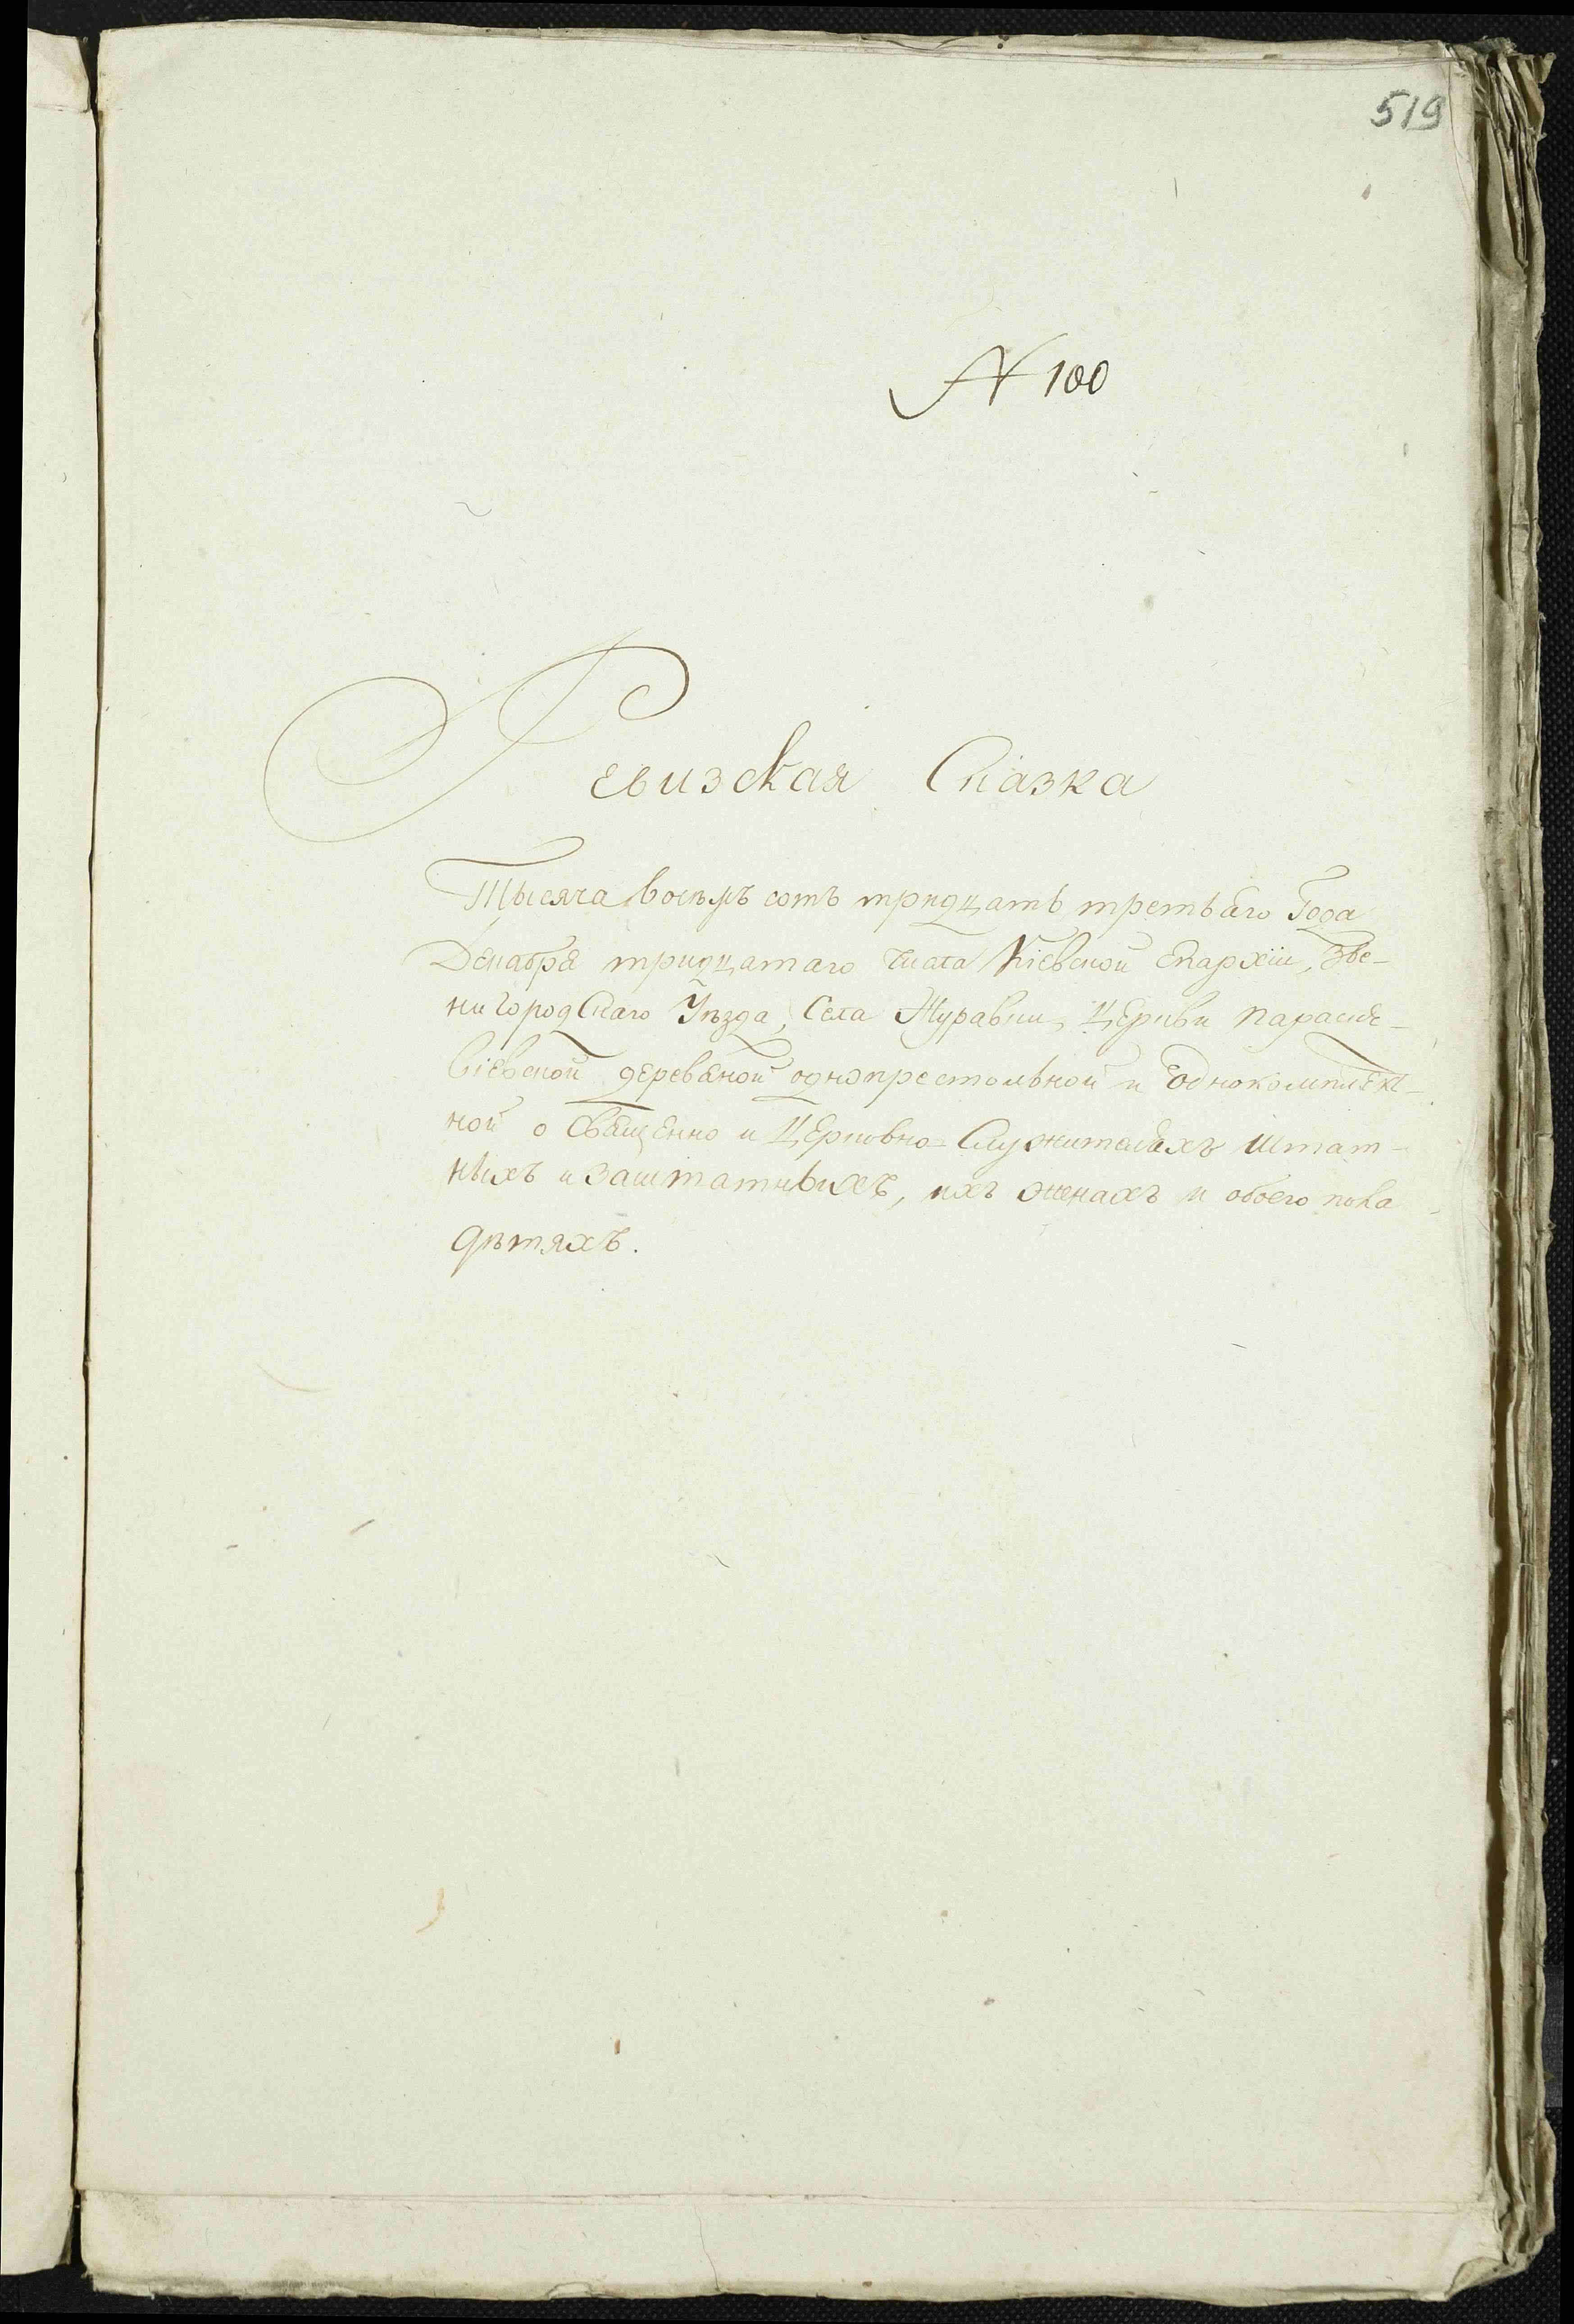 519
N 100
Ревизская Сказка
Тысяча восемъ сотъ тридцать третьяго Года
Декабря тридцатаго числа Кіевской Епархіи, Зве-
нигородскаго Уѣзда, Села Журавки, Церкви Параске-
віевской деревяной однопрестольной и однокомплект-
ной о Священно и Церковно-Служителяхъ штат-
ныхъ и заштатныхъ, ихъ женахъ и обоего пола
дѣтяхъ.